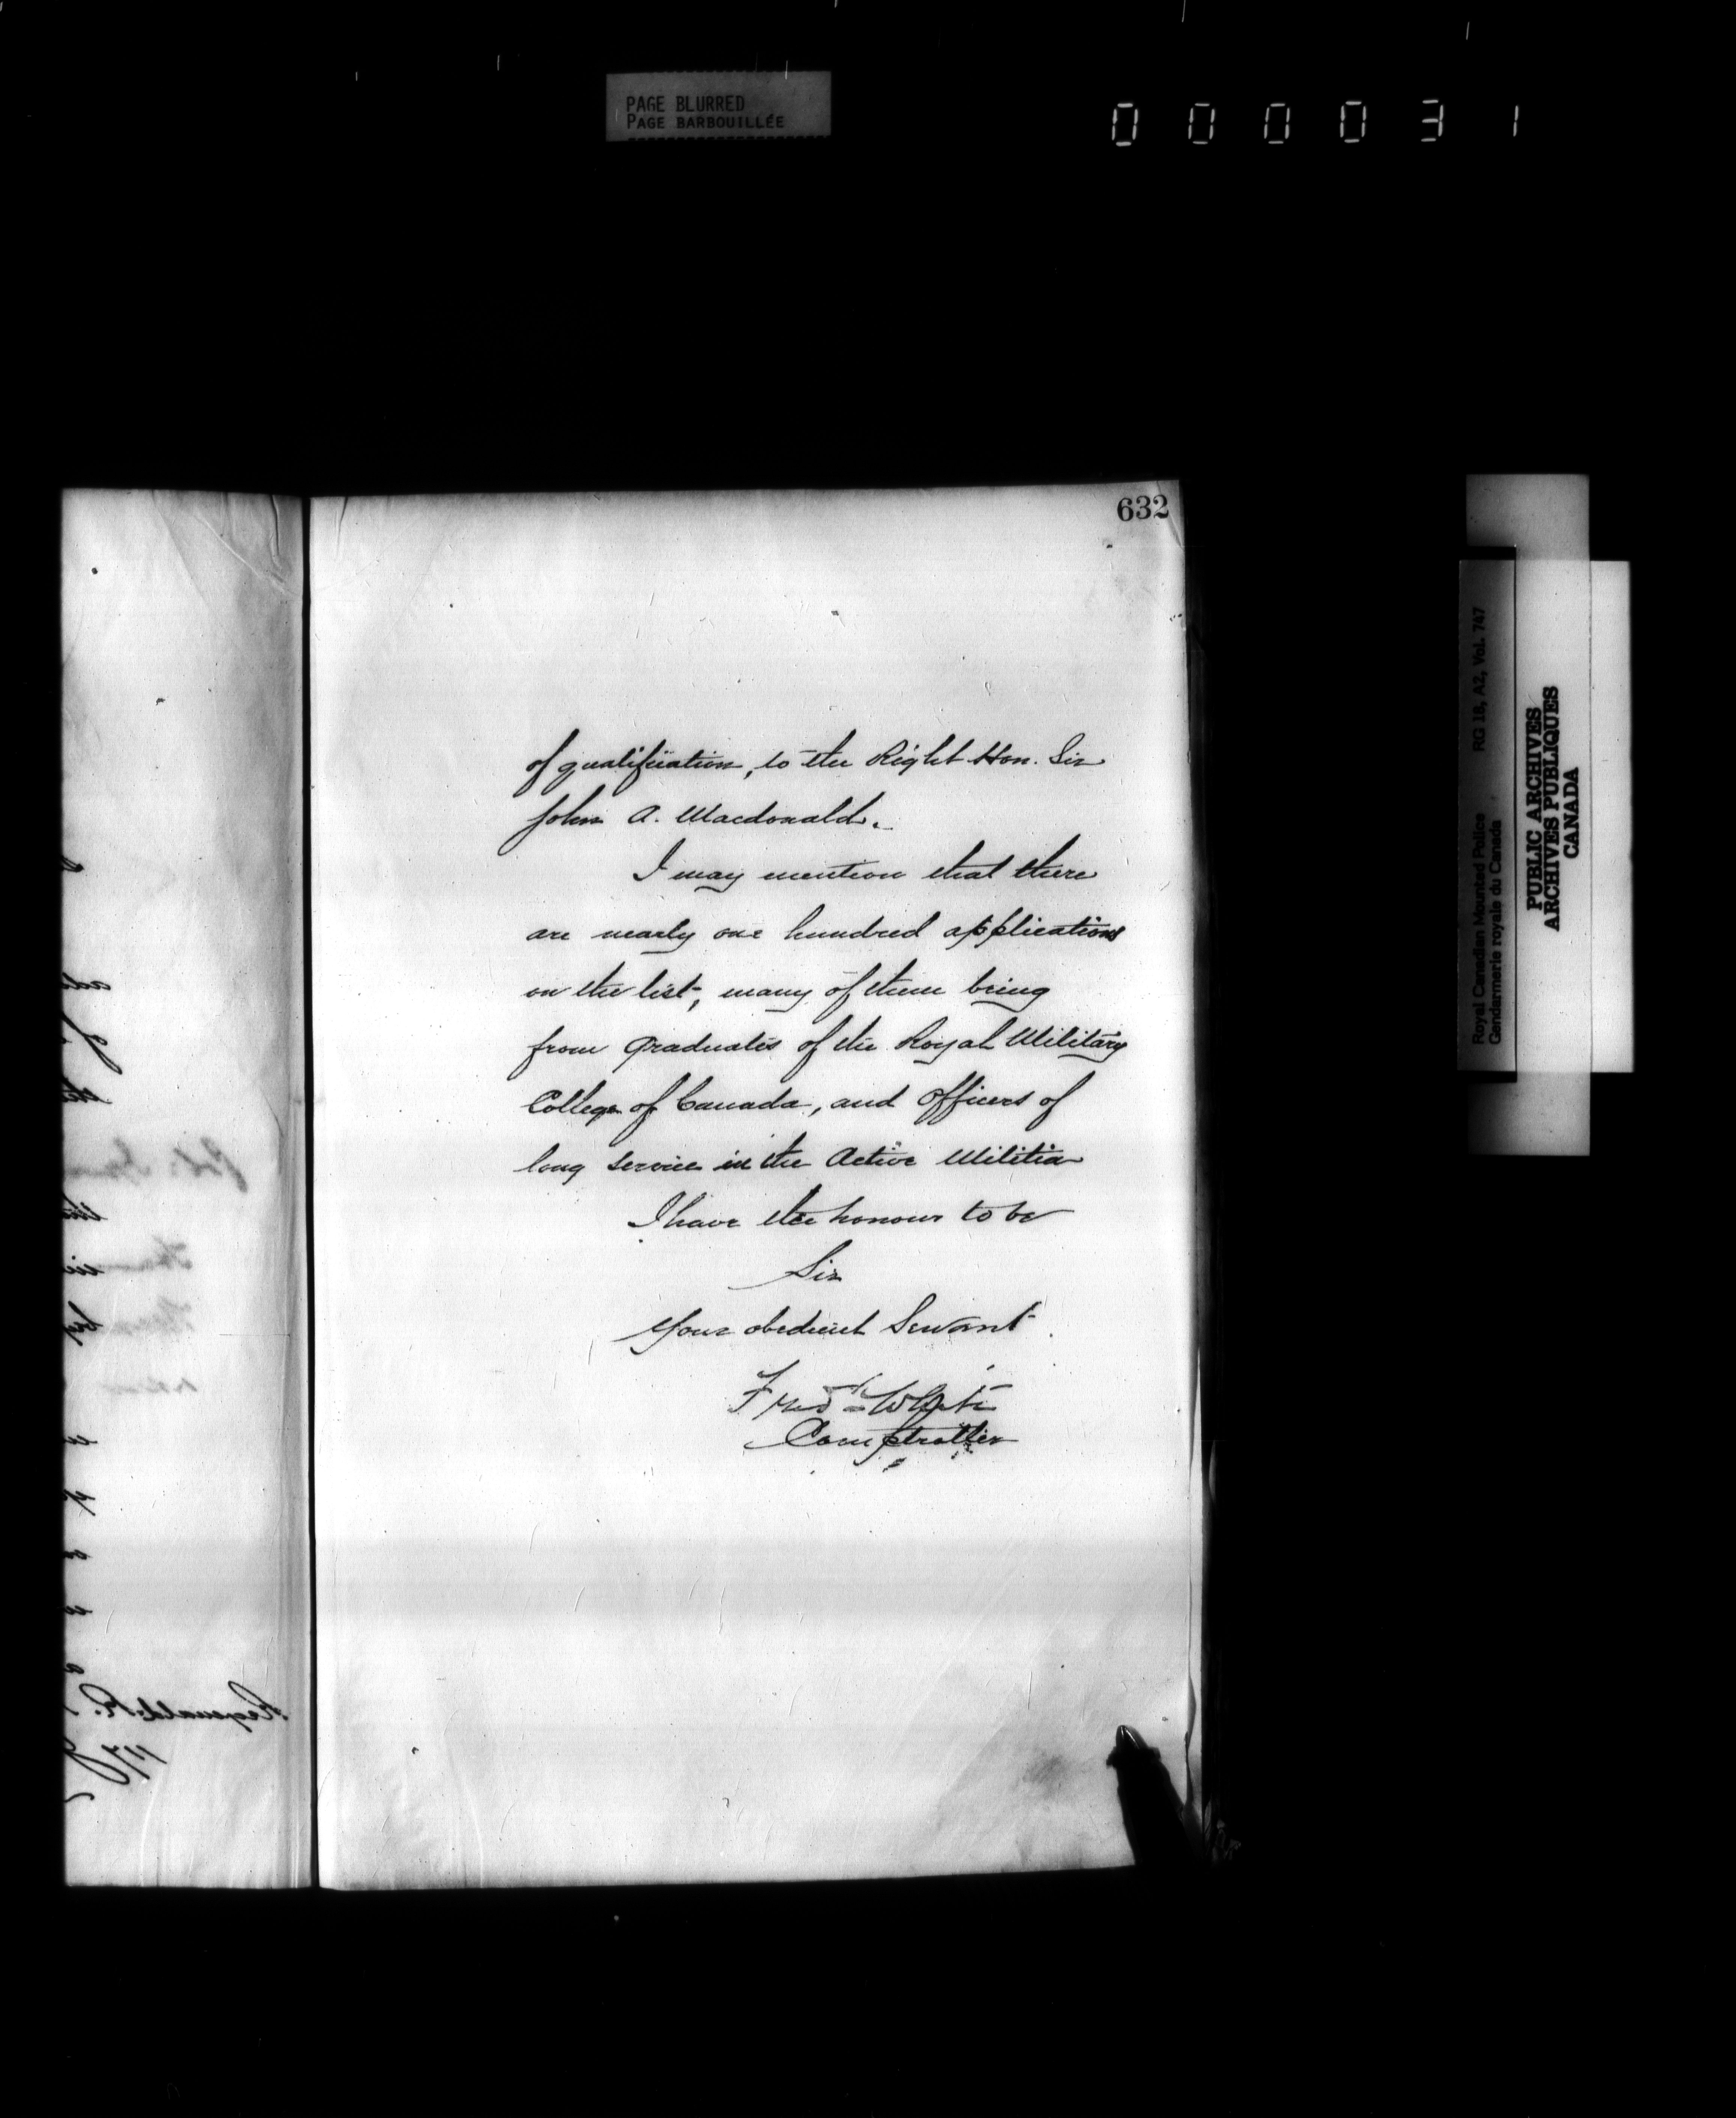 PAGE BLURRED
PAGE BARBOUILLÉE
000031
632
of qualification, to the Right Hon. Sir
John A. Macdonald.
I may mention that there
are nearly one hundred applications
on the list, many of them being
from graduates of the Royal Military
College of Canada, and Officers of
long service in the Active Militia
I have the honour to be
Sir
Your obedient Servant
Fred White
Comptroller
Royal Canadian Mounted Police RG 18, A2, Vol. 747
Gendarmerie royale du Canada
PUBLIC ARCHIVES
ARCHIVES PUBLIQUES
CANADA